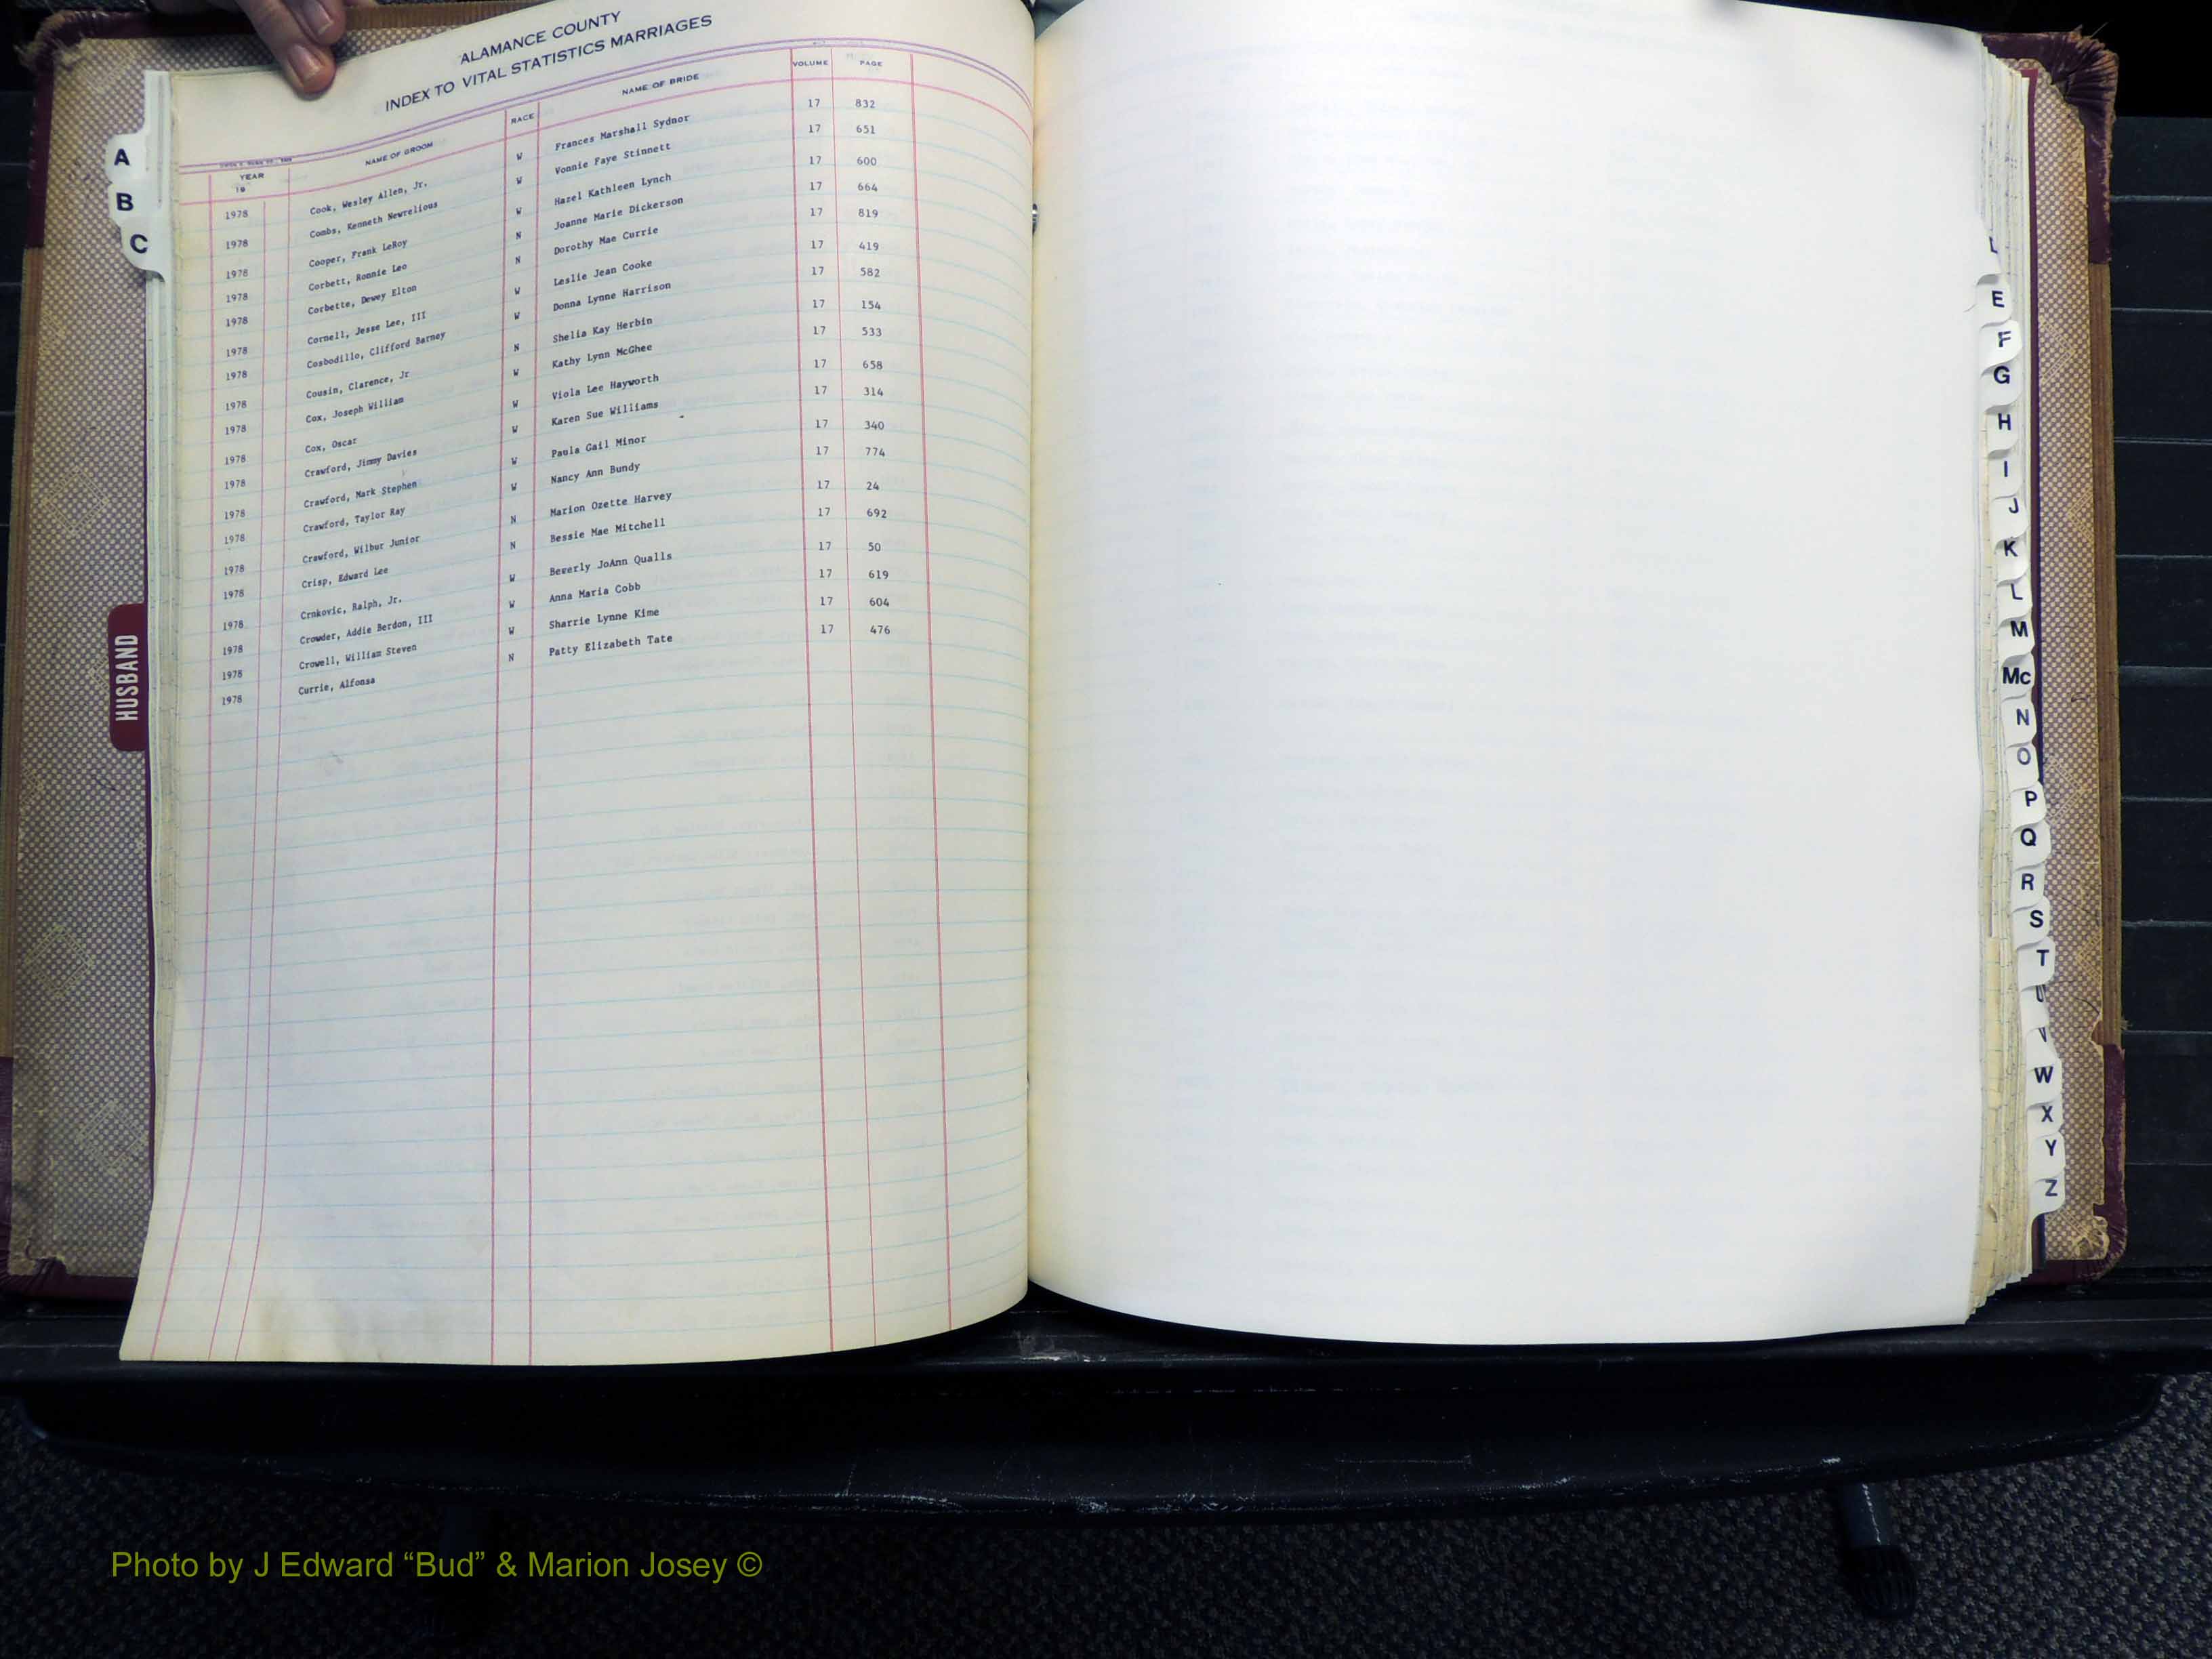 ALAMANCE COUNTY
INDEX TO VITAL STATISTICS MARRIAGES
YEAR 19 NAME OF GROOM RACE NAME OF BRIDE VOLUME PAGE
1978 Cook, Wesley Allen, Jr. W Frances Marshall Sydnor 17 832
1978 Combs, Kenneth Newrelious W Vonnie Faye Stinnett 17 651
1978 Cooper, Frank LeRoy W Hazel Kathleen Lynch 17 600
1978 Corbett, Ronnie Leo N Joanne Marie Dickerson 17 664
1978 Corbette, Dewey Elton N Dorothy Mae Currie 17 819
1978 Cornell, Jesse Lee, III W Leslie Jean Cooke 17 419
1978 Cosbodillo, Clifford Barney W Donna Lynne Harrison 17 582
1978 Cousin, Clarence, Jr N Shelia Kay Herbin 17 154
1978 Cox, Joseph William W Kathy Lynn McGhee 17 533
1978 Cox, Oscar W Viola Lee Hayworth 17 658
1978 Crawford, Jimmy Davies W Karen Sue Williams 17 314
1978 Crawford, Mark Stephen W Paula Gail Minor 17 340
1978 Crawford, Taylor Ray W Nancy Ann Bundy 17 774
1978 Crawford, Wilbur Junior N Marion Ozette Harvey 17 24
1978 Crisp, Edward Lee N Bessie Mae Mitchell 17 692
1978 Crnkovic, Ralph, Jr. W Beverly JoAnn Qualls 17 50
1978 Crowder, Addie Berdon, III W Anna Maria Cobb 17 619
1978 Crowell, William Steven W Sharrie Lynne Kime 17 604
1978 Currie, Alfonsa N Patty Elizabeth Tate 17 476
A
B
C
HUSBAND
E
F
G
H
I
J
K
L
M
Mc
N
O
P
Q
R
S
T
U
V
W
X
Y
Z
Photo by J Edward “Bud” & Marion Josey ©